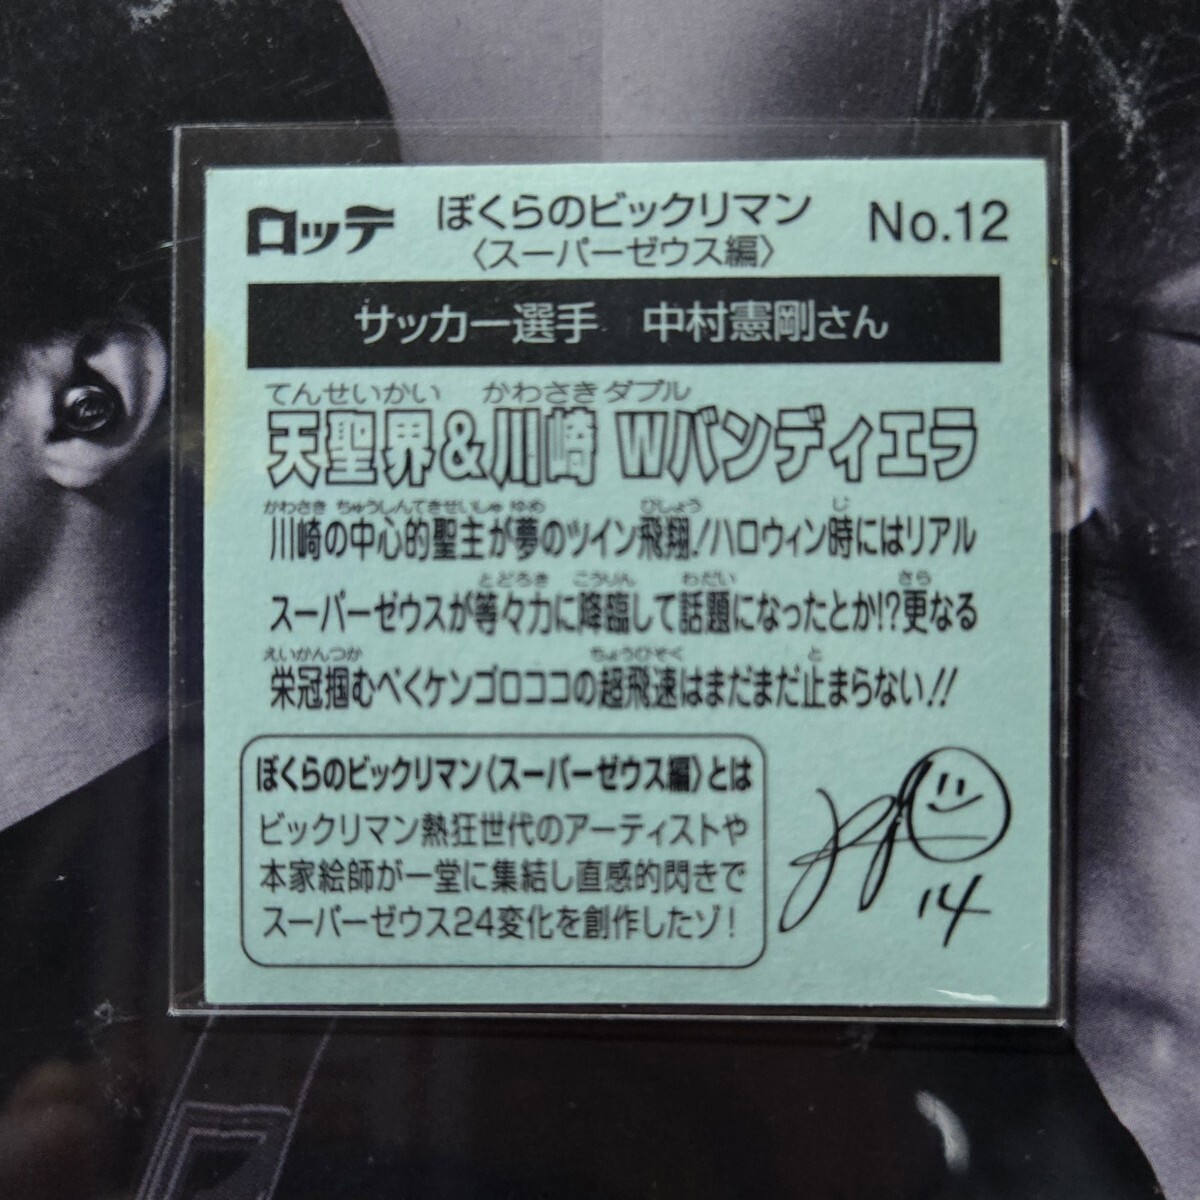 ロッテ ぼくらのビックリマン No.12
〈スーパーゼウス編〉
サッカー選手 中村憲剛さん
てんせいかい かわさきダブル
天聖界&川崎 Wバンディエラ
かわさき ちゅうしんてきせいしゅ ゆめ ひしょう じ
川崎の中心的聖主が夢のツイン飛翔!ハロウィン時にはリアル
とどろき こうりん わだい さら
スーパーゼウスが等々力に降臨して話題になったとか!?更なる
えいかんつか ちょうひそく と
栄冠掴むべくケンゴロココの超飛速はまだまだ止まらない!!
ぼくらのビックリマン〈スーパーゼウス編〉とは
ビックリマン熱狂世代のアーティストや
本家絵師が一堂に集結し直感的閃きで
スーパーゼウス24変化を創作したゾ!
14